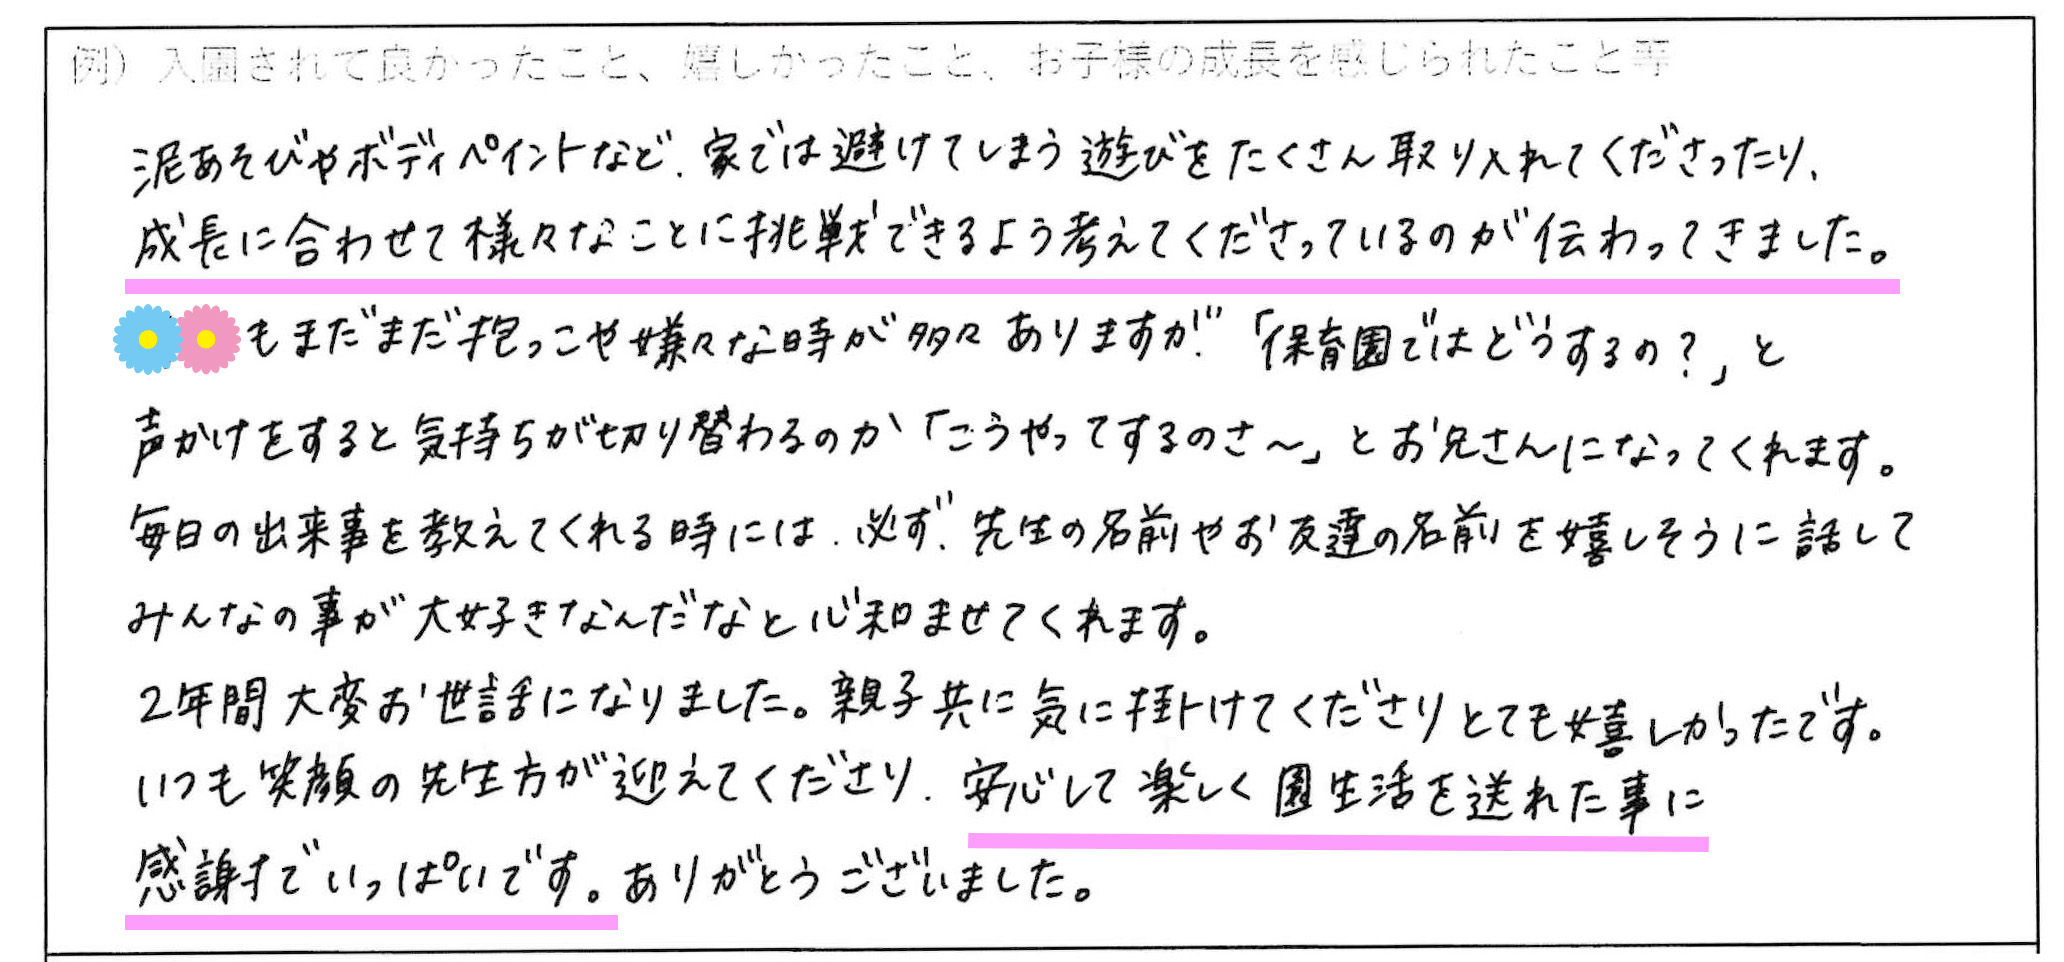 例）入園されて良かったこと、嬉しかったこと、お子様の成長を感じられたこと等
泥あそびやボディペイントなど、家では避けてしまう遊びをたくさん取り入れてくださったり、
成長に合わせて様々なことに挑戦できるよう考えてくださっているのが伝わってきました。
もまだまだ抱っこや嫌々な時が多々ありますが、「保育園ではどうするの？」と
声かけをすると気持ちが切り替わるのか「こうやってするのさ〜」とお兄さんになってくれます。
毎日の出来事を教えてくれる時には、必ず、先生の名前やお友達の名前を嬉しそうに話して
みんなの事が大好きなんだなと心和ませてくれます。
2年間大変お世話になりました。親子共に気に掛けてくださりとても嬉しかったです。
いつも笑顔の先生方が迎えてくださり、安心して楽しく園生活を送れた事に
感謝でいっぱいです。ありがとうございました。